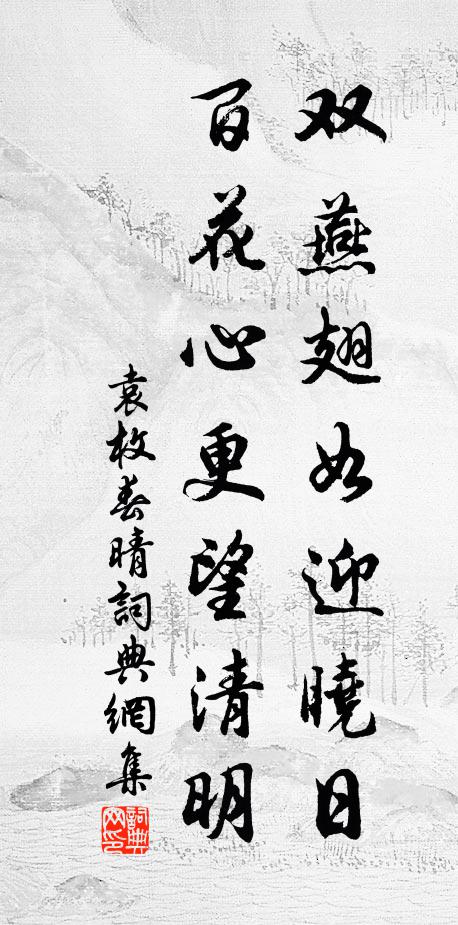 双燕翅如迎曉日
百花心更望清明
袁枚春晴詞典網集
詞典网印